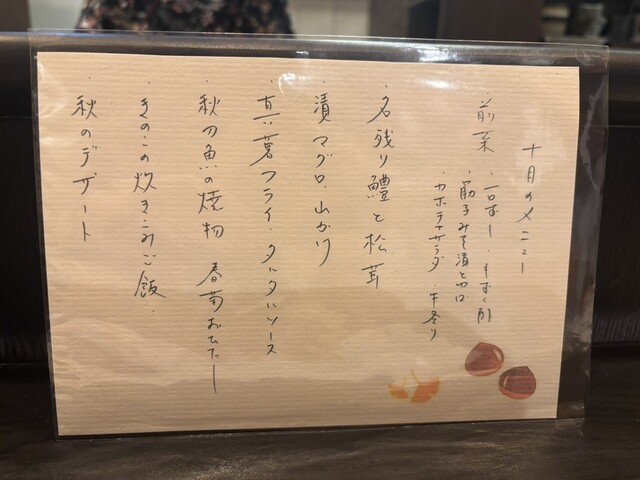 十月のメニュー
・前菜 ・一口すし ・もずく酢
・筋子みそ漬と
・カボチャサラダ
・名残り鱧と松茸
・漬マグロ、山かけ
・真薯フライ・タルタルソース
・秋の魚の焼物 春菊おひたし
・きのこの炊きこみご飯.
・秋のデザート